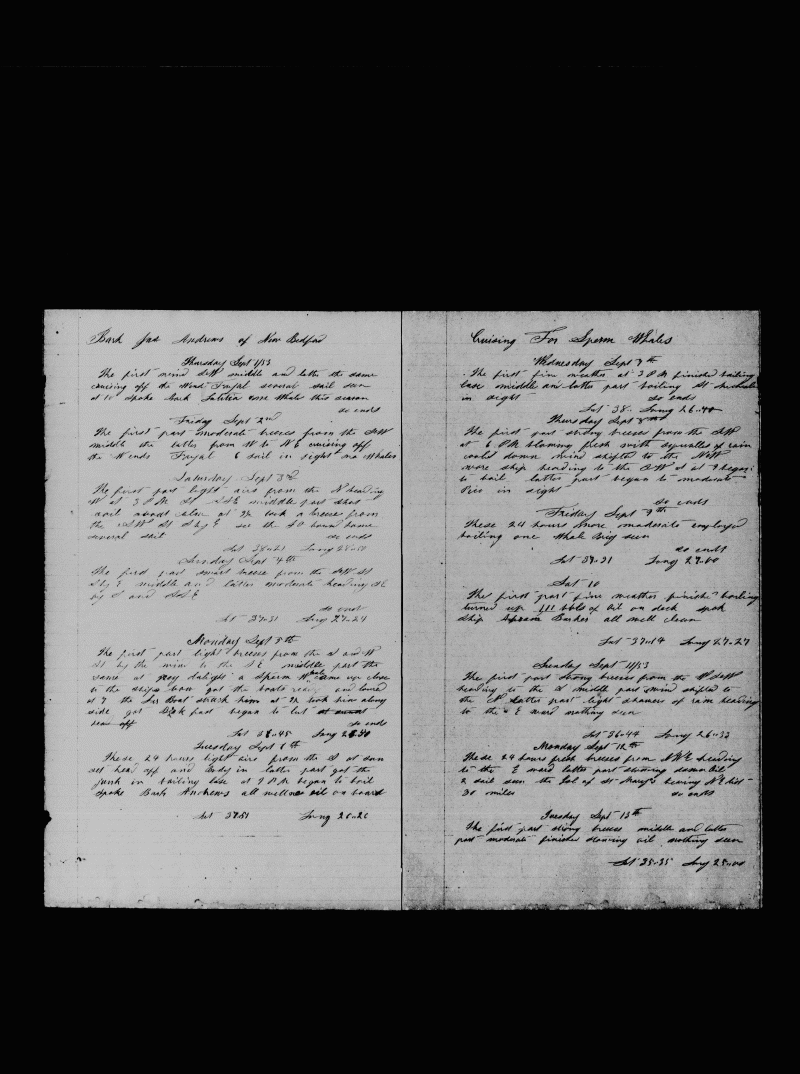 Bark Jas Andrews of New Bedford
Thursday Sept 1/53
The first wind SW middle and latter the same
cruising off the West Fayal several sail seen
at 10 spoke Bark Whales this season
so ends
Friday Sept 2nd
The first part moderate breezes from the SW
middle the latter from W to cruising off
the W ends Fayal 6 sail in sight no Whales
Saturday Sept 3rd
The first part light airs from the N heading
W at 3 P.M. middle part
sail about Calm at took a breeze from
the SSW St S by E see the bound home
several sail so ends
Lat 38-21 Long 28-10
Sunday Sept 4th
The first part small breeze from the SW St
S by E middle and latter moderate heading SE
by S and SSE
so ends
Lat 37-31 Long 27-24
Monday Sept 5th
The first part light breezes from the S and W
St by the wind to the SE middle part the
same at day daylight a Sperm Whale came up close
to the ships bow got the boats ready and lowed
at 7 the Lar Boat struck him at took him along
side got fast began to cut
so ends
Lat 38-45 Long
Tuesday Sept 6th
These 24 hours light airs from the S at sun
set head off and body in latter part got the
junk in boiling case at 7 P.M. began to boil
spoke Bark Andrews all well no oil on board
Lat 3751 Long 26-20
Cruising For Sperm Whales
Wednesday Sept 7th
The first fine weather at 3 P.M. finished boiling
case middle and latter part boiling St
in sight so ends
Lat 38- Long 26-40
Thursday Sept 8th
The first part strong breezes from the SW
at 6 P.M. blowing fresh with squalls of rain
down wind shifted to the NW
wore ship heading to the SW at began
to boil latter part began to moderate
in sight
so ends
Friday Sept 9th
These 24 hours more moderate employed
boiling one Whale Brig seen
so ends
Lat 37-31 Long 27-00
Sat 10
The first part fine weather finished boiling
turned up 111 bbls of oil on deck spok
Ship Barker all well clean
Lat 37-14 Long 27-27
Sunday Sept 11/53
The first part strong breezes from the
heading to the S middle part wind shifted to
the N latter part light showers of rain heading
to the E ward nothing seen
Lat 36-44 Long 26-33
Monday Sept 12th
These 24 hours fresh breezes from heading
to the E ward latter part stowing down oil
2 sail seen the Isl of St Mary's bearing dist
30 miles so ends
Tuesday Sept 13th
The first part strong breeze middle and latter
part moderate finished stowing oil nothing seen
Lat 35-35 Long 25-00